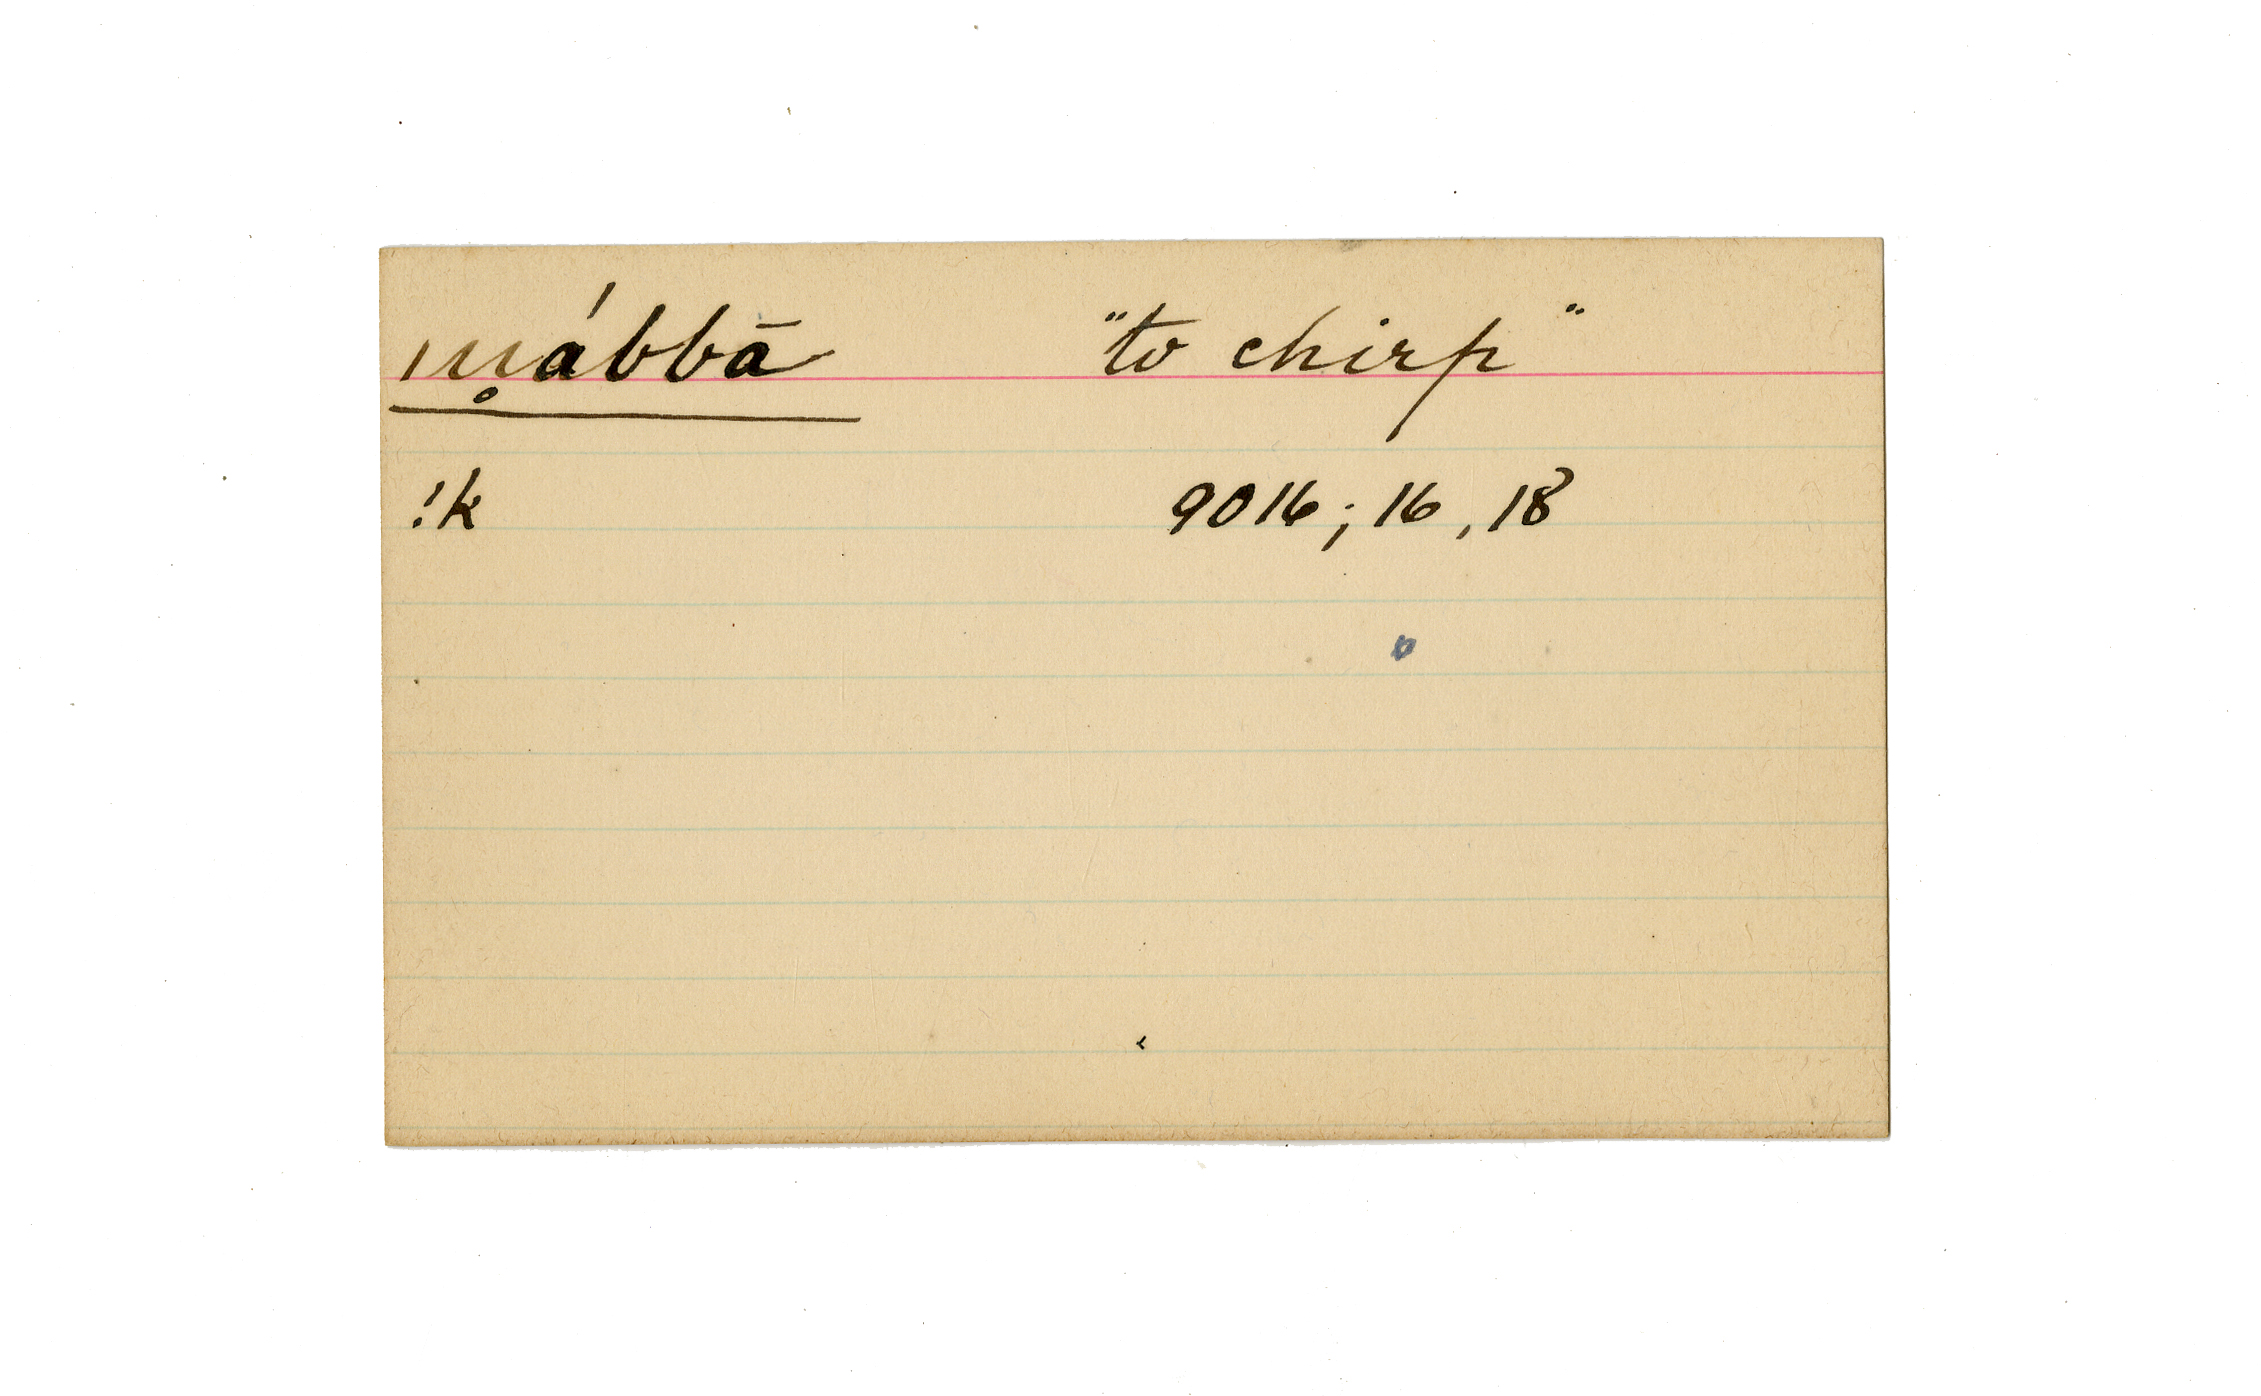 |n̥ábbā "to chirp"
!k 9016; 16, 18